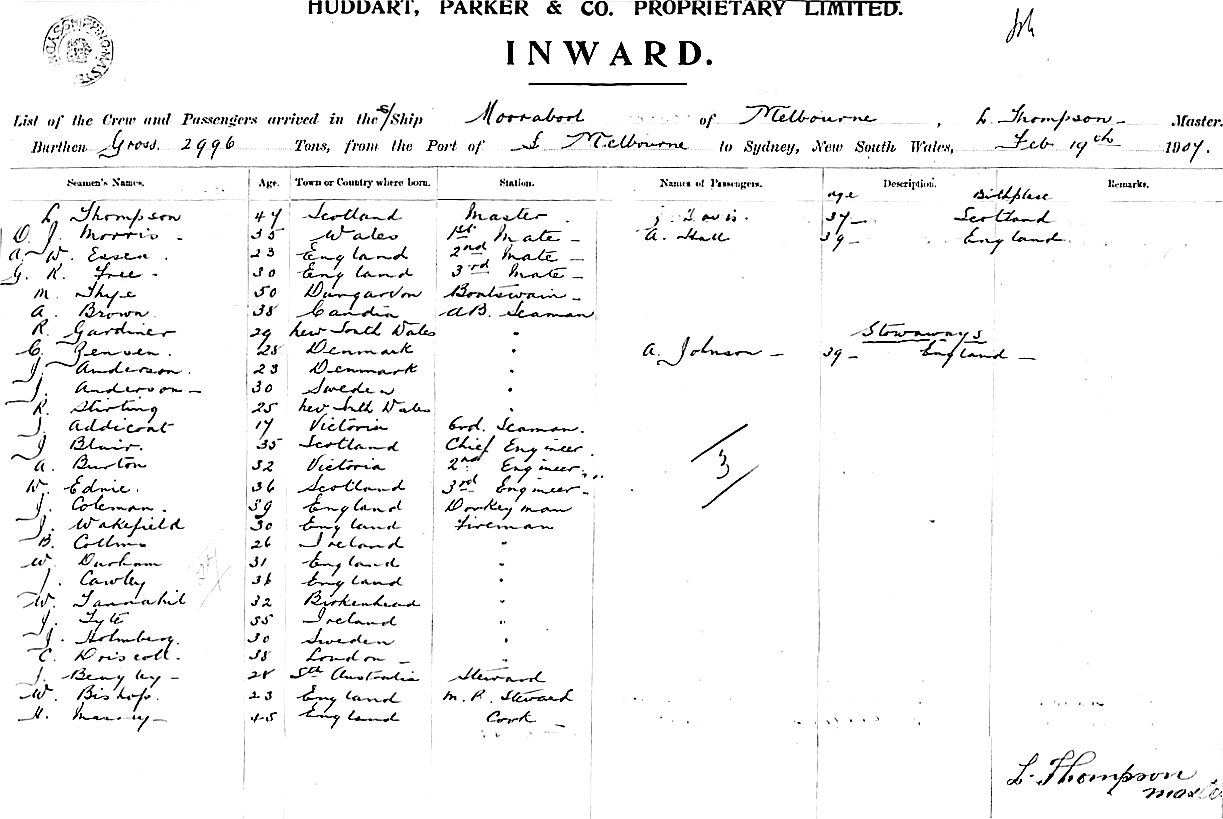 HUDDART, PARKER & CO. PROPRIETARY LIMITED.
INWARD.
List of the Crew and Passengers arrived in the S/Ship Moorabool of Melbourne, L. Thompson Master.
Burthen Gross 2996 Tons, from the Port of Melbourne to Sydney, New South Wales, Feb 19th 1907.
Seamen's Names. Age. Town or Country where born. Station. Names of Passengers. age Description. Birthplace Remarks.
L. Thompson 47 Scotland Master. J. Davis. 37 Scotland
D. J. Morris 35 Wales 1st Mate A. Hall 39 England
A. W. Essen. 23 England 2nd Mate
G. R. Free 30 England 3rd Mate
M. Thye 50 Dungarvon Boatswain
A. Brown. 38 Candia A B. Seaman
R. Gardiner 29 New South Wales "
Stowaways
C. Jensen. 25 Denmark " A. Johnson 39 England
J. Anderson. 23 Denmark "
J. Anderson 30 Sweden "
R. Stirling 25 New South Wales "
J. Addicoat 17 Victoria Ord. Seaman.
J. Blair. 35 Scotland Chief Engineer.
A. Burton 32 Victoria 2nd Engineer.
3
W. Ednie. 36 Scotland 3rd Engineer
J. Coleman. 39 England Donkeyman
J. Wakefield 30 England Fireman
B. Collins 26 Ireland "
W. Durham 31 England "
J. Cawley 36 England "
W. Tannahil 32 Birkenhead "
J. Tyte 35 Ireland "
J. Holmberg. 30 Sweden "
C. Driscoll. 38 London "
J. Bengley 28 Sth Australia Steward
W. Bishop. 23 England M. R. Steward
H. 45 England Cook
L. Thompson
Master